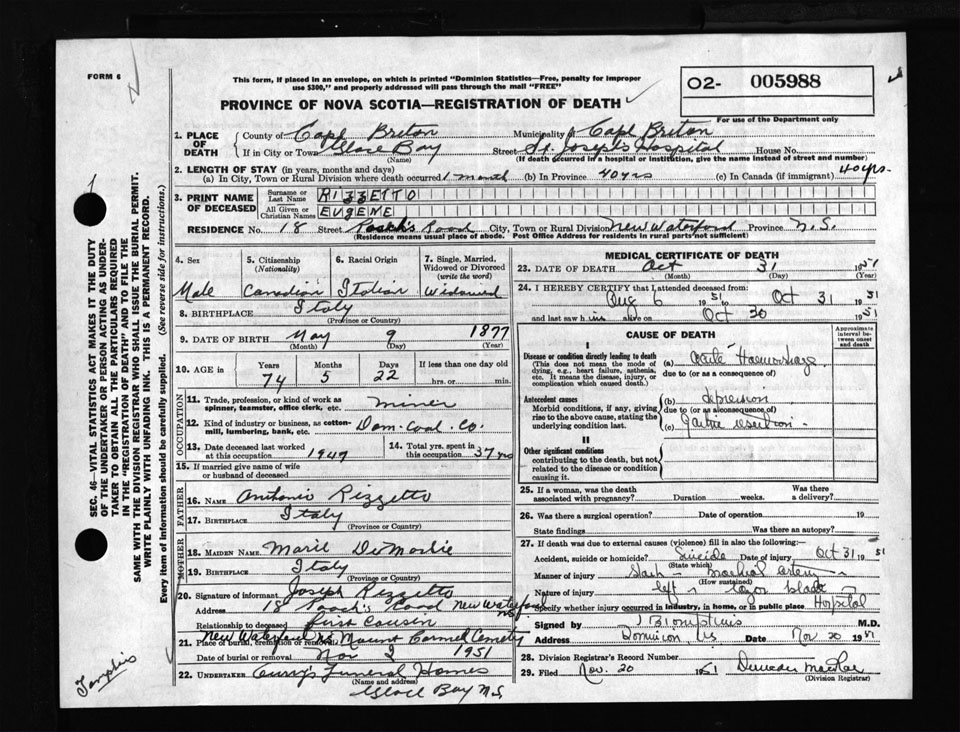 FORM 6
This form, if placed in an envelope, on which is printed "Dominion Statistics—Free, penalty for improper
use $300," and properly addressed will pass through the mail "FREE"
PROVINCE OF NOVA SCOTIA—REGISTRATION OF DEATH
02- 005988
For use of the Department only
1. PLACE OF DEATH
County of Cape Breton Municipality of Cape Breton
If in City or Town Glace Bay Street St. Joseph's Hospital House No.
(Name) (If death occurred in a hospital or institution, give the name instead of street and number)
2. LENGTH OF STAY (in years, months and days)
(a) In City, Town or Rural Division where death occurred 1 month (b) In Province 40 yrs (c) In Canada (if immigrant) 40 yrs.
3. PRINT NAME OF DECEASED
Surname or Last Name RIZZETTO
All Given or Christian Names EUGENE
RESIDENCE No. 18 Street Road City, Town or Rural Division New Waterford Province N.S.
(Residence means usual place of abode. Post Office Address for residents in rural parts not sufficient)
4. Sex Male
5. Citizenship (Nationality) Canadian
6. Racial Origin Italian
7. Single, Married, Widowed or Divorced (write the word) Widowed
8. BIRTHPLACE Italy
(Province or Country)
9. DATE OF BIRTH May 9 1877
(Month) (Day) (Year)
10. AGE Years 74 Months 5 Days 22 If less than one day old hrs. or min.
OCCUPATION
11. Trade, profession, or kind of work as spinner, teamster, office clerk, etc. miner
12. Kind of industry or business, as cotton-mill, lumbering, bank, etc. Dom. Coal. Co.
13. Date deceased last worked at this occupation 1947
14. Total yrs. spent in this occupation 37 yrs
15. If married give name of wife or husband of deceased
FATHER
16. NAME Anthonio Rizzetto
17. BIRTHPLACE Italy
(Province or Country)
MOTHER
18. MAIDEN NAME Marie
19. BIRTHPLACE Italy
(Province or Country)
20. Signature of informant Joseph Rizzetto
Address 18 Road New Waterford NS
Relationship to deceased First Cousin
21. Place of burial, cremation or removal New Waterford NS Mount Carmel Cemetery
Date of burial or removal Nov 2 1951
22. UNDERTAKER Curry's Funeral Homes
(Name and address)
Glace Bay N.S.
MEDICAL CERTIFICATE OF DEATH
23. DATE OF DEATH Oct 31 1951
(Month) (Day) (Year)
24. I HEREBY CERTIFY that I attended deceased from:
Aug 6 1951 to Oct 31 1951
and last saw him alive on Oct 30 1951
CAUSE OF DEATH
Approximate interval between onset and death
I
Disease or condition directly leading to death
(This does not mean the mode of dying, e.g., heart failure, asthenia, etc. It means the disease, injury, or complication which caused death.)
(a) Acute Haemorrhage
due to (or as a consequence of)
Antecedent causes
Morbid conditions, if any, giving rise to the above cause, stating the underlying condition last.
(b) depression
due to (or as a consequence of)
(c)
II
Other significant conditions
contributing to the death, but not related to the disease or condition causing it.
25. If a woman, was the death associated with pregnancy? Duration weeks. Was there a delivery?
26. Was there a surgical operation? Date of operation 19
State findings Was there an autopsy?
27. If death was due to external causes (violence) fill in also the following:—
Accident, suicide or homicide? Suicide Date of injury Oct 31 1951
(State which)
Manner of injury Slash - brachial artery -
(How sustained)
Nature of injury left - razor blade
Specify whether injury occurred in industry, in home, or in public place Hospital
Signed by M.D.
Address Dominion, NS Date Nov 20 1951
28. Division Registrar's Record Number
29. Filed Nov. 20 1951
(Division Registrar)
SEC. 46—VITAL STATISTICS ACT MAKES IT THE DUTY
OF THE UNDERTAKER OR PERSON ACTING AS UNDER-
TAKER TO OBTAIN ALL THE PARTICULARS REQUIRED
IN THE "REGISTRATION OF DEATH" AND TO FILE THE
SAME WITH THE DIVISION REGISTRAR WHO SHALL ISSUE THE BURIAL PERMIT.
WRITE PLAINLY WITH UNFADING INK. THIS IS A PERMANENT RECORD.
Every item of information should be carefully supplied. (See reverse side for instructions.)